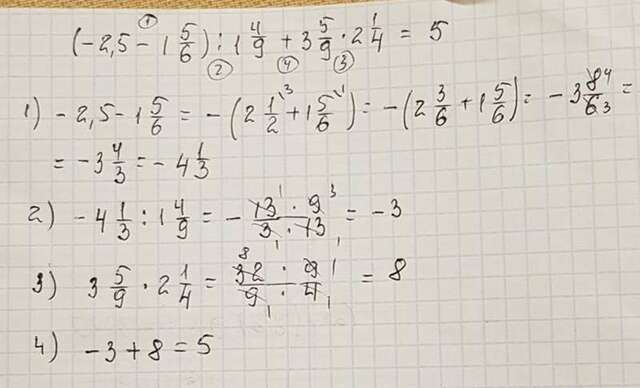 (-2,5 - 1 5/6) : 1 4/9 + 3 5/9 · 2 1/4 = 5
① ② ④ ③
1) -2,5 - 1 5/6 = -(2 1/2 \3 + 1 5/6 \1) = -(2 3/6 + 1 5/6) = -3 8/6 4 3 =
= -3 4/3 = -4 1/3
2) -4 1/3 : 1 4/9 = - 13 1 · 9 3 / 3 1 · 13 1 = -3
3) 3 5/9 · 2 1/4 = 8 32 · 9 1 / 9 1 · 4 1 = 8
4) -3 + 8 = 5